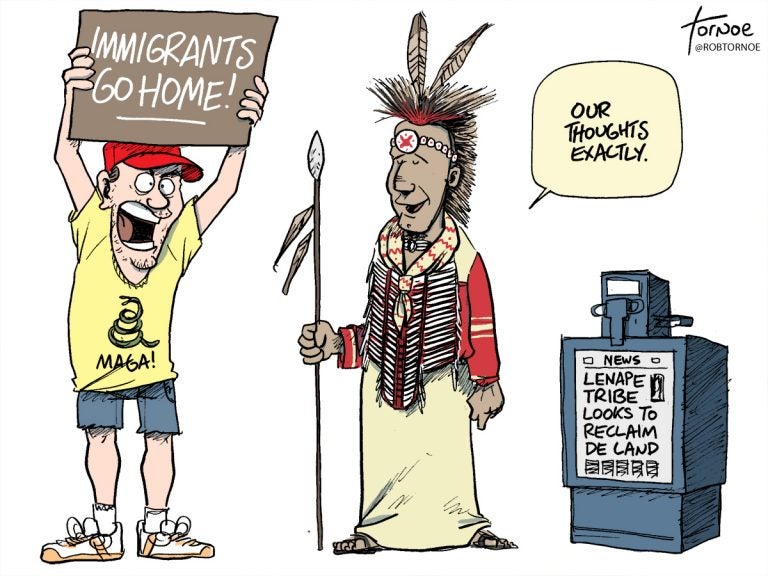 IMMIGRANTS
GO HOME!
MAGA!
OUR
THOUGHTS
EXACTLY.
Tornoe
@ROBTORNOE
NEWS
LENAPE
TRIBE
LOOKS TO
RECLAIM
DE LAND